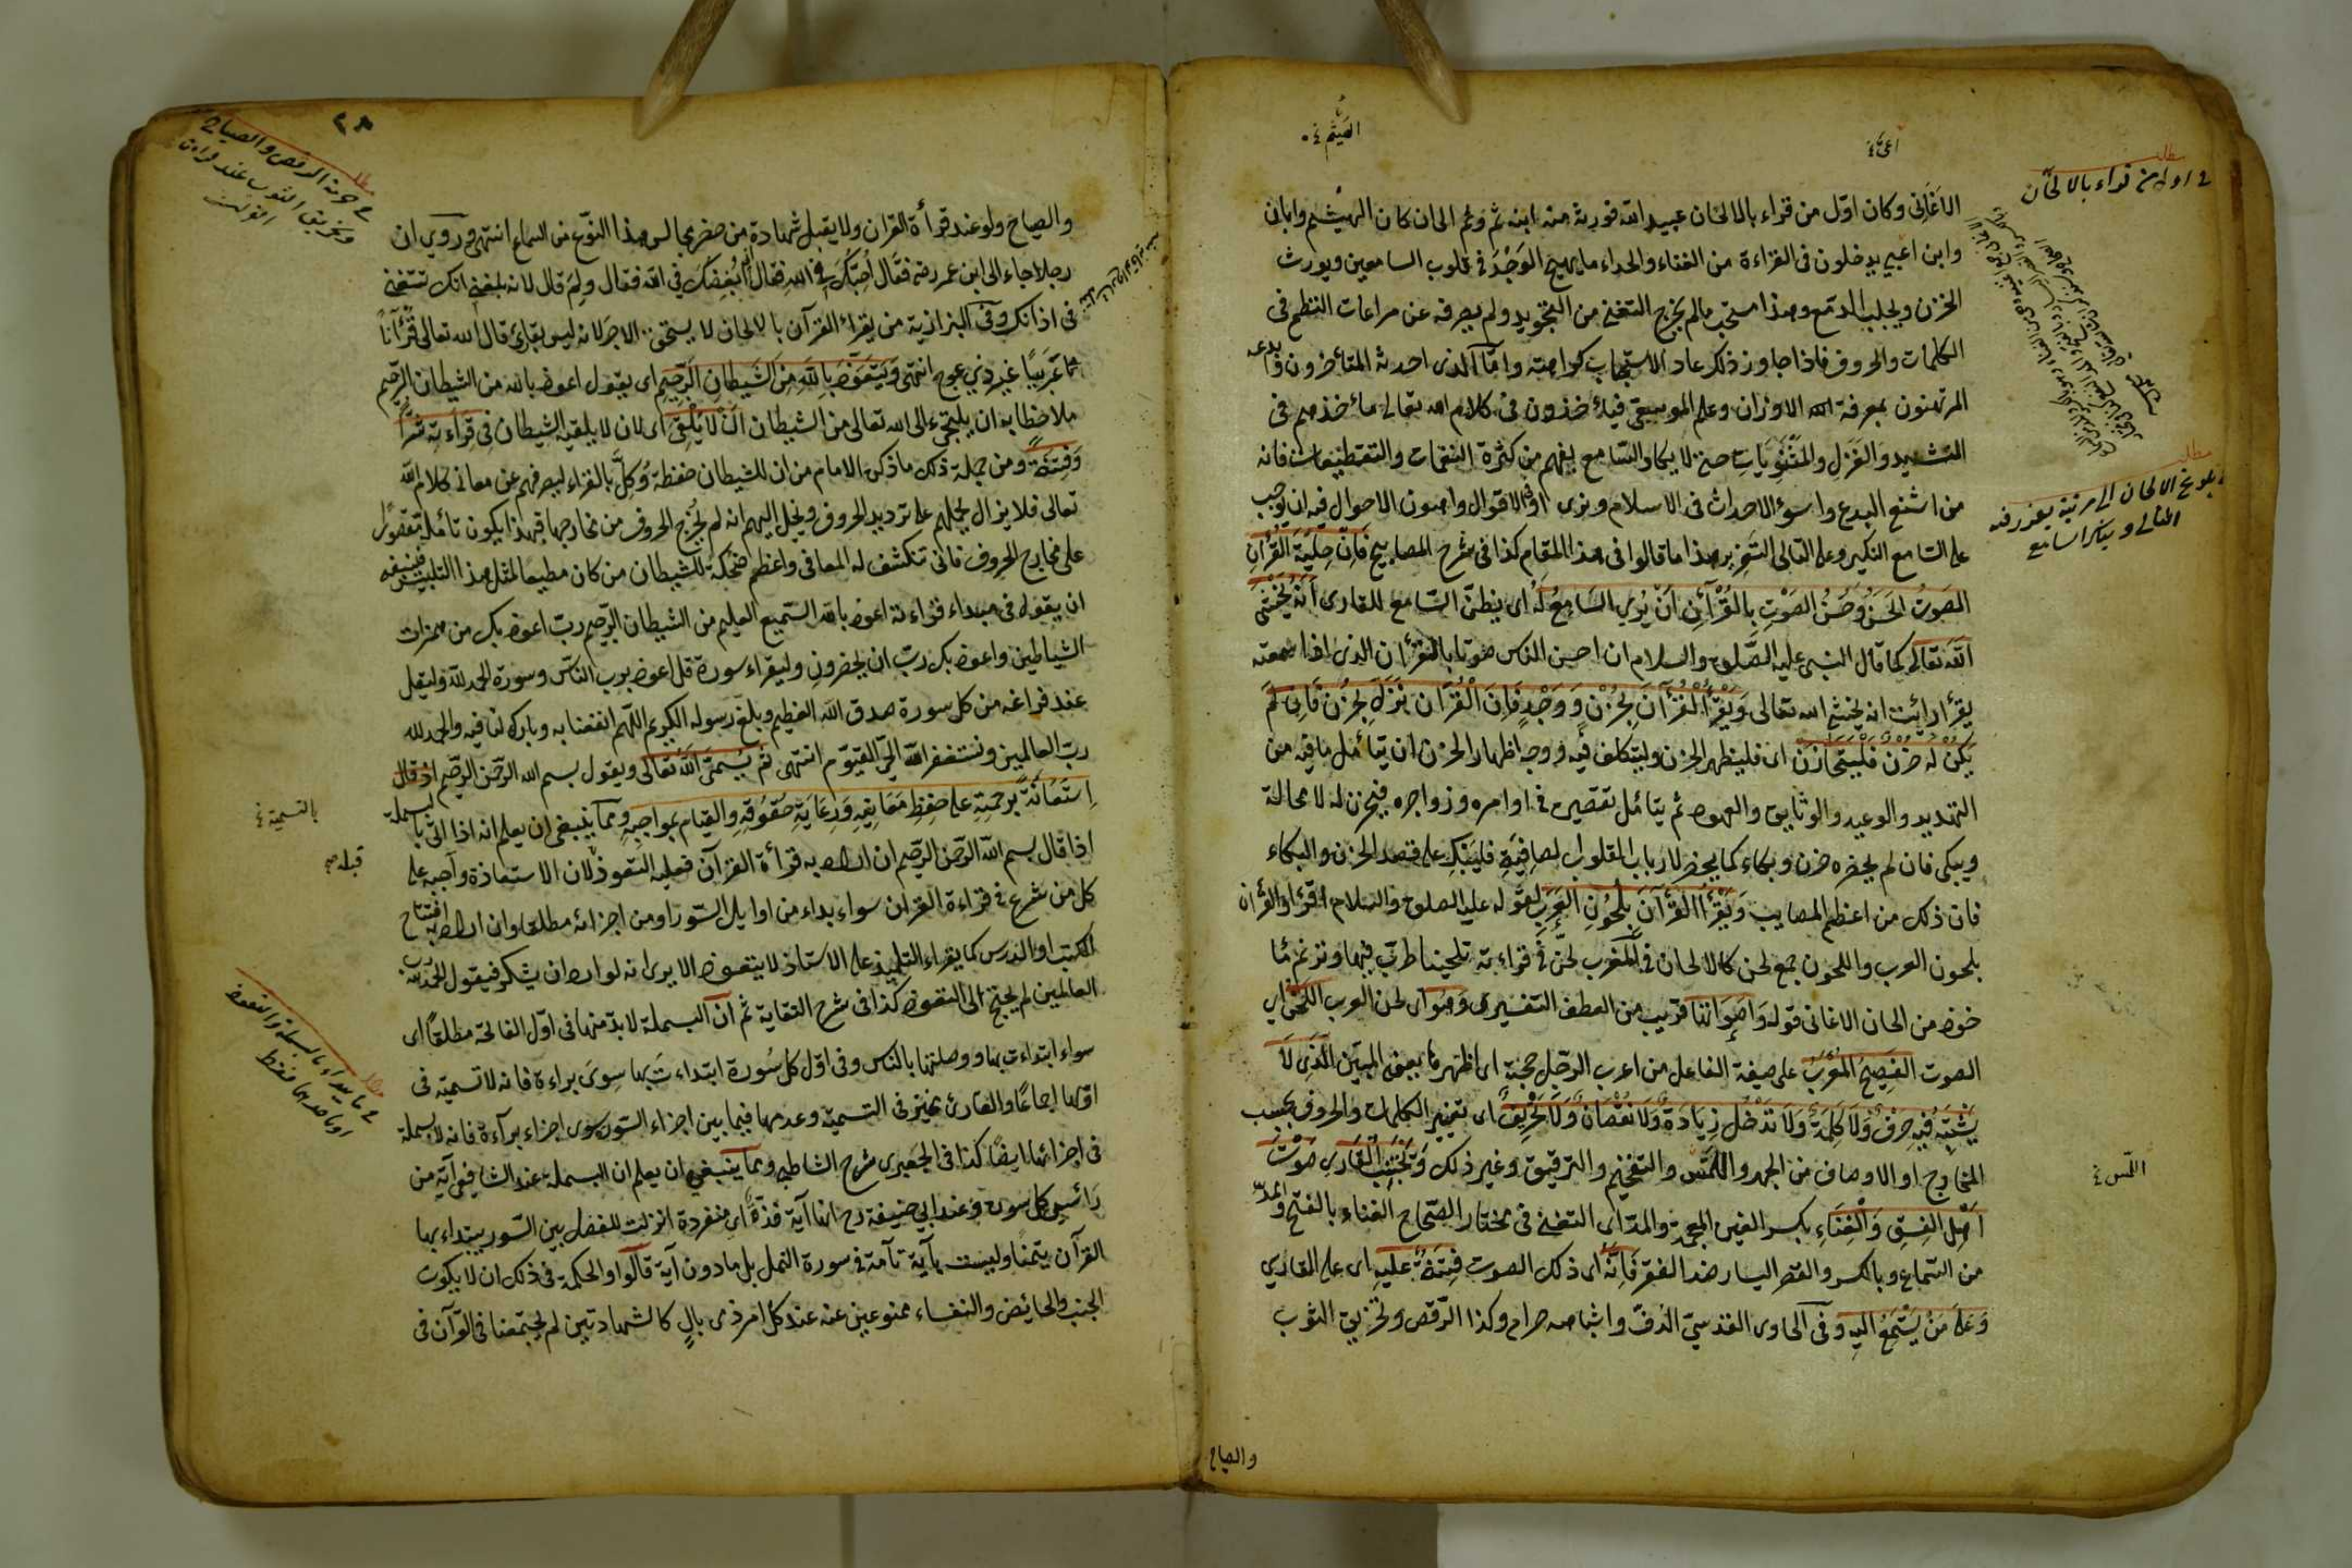 الاغاني وكان اول من قراء بالالحان عبيد الله فورثه منه ابنه ثم وثم الى ان كان الهيثم وابان
وابن اعين يدخلون في القراءة من الغناء والحداء ما يهيج الوَجْدَ في قلوب السامعين ويورث
الحزن ويجلب الدمع وهذا مستحب ما لم يخرج التغني من التجويد ولم يصرفه عن مراعات النظم في
الكلمات والحروف فاذا جاوز ذلك عاد الاستحباب كراهية واما الذي احدثه المتأخرون وابدعه
المرتهنون بمعرفة الاوزان وعلم الموسيقي فيأخذون في كلام الله تعالى مأخذهم في
التشبيد والغَزَلِ والمَثْنَوِيَاتِ حتى لا يكاد السامع يفهم من كثرة النغمات والتقطيعات فانه
من اشنع البدع واسوء الاحداث في الاسلام ونرى ادنى الاقوال واهون الاحوال فيه ان يوجب
على السامع النكير وعلى التالي التعزير هذا ما قالوا في هذا المقام كذا في شرح المصابيح فَاِنَّ حِلْيَةَ القُرْاٰنِ
الصَوتُ الحَسَنُ وَحُسْنُ الصَوْتِ بِالقُرْآنِ اَنْ يُرِيَ السَامِعُ لَهُ اى يظن السامع للقارى اَنَّهُ يَخْشَى
اللّٰهَ تعالى كما قال النبي عليه الصلوة والسلام ان احسن الناس صوتا بالقرأن الذى اذا سمعته
يقرأ رأيت انه يخشى الله تعالى وَيَقْرَأُ الْقُرْآنَ بِحُزْنٍ وَ وَجْدٍ فَاِنَّ الْقُرْآنَ نَزَلَ بِحُزْنٍ فَاِنْ لَمْ
يَكُنْ لَهُ حُزْنٌ فَلْيَتَحَازَنْ اى فليظهر الحزن وليتكلف فيه ووجه اظهار الحزن ان يتأمل ما فيه من
التهديد والوعيد والوثايق والعهود ثم يتأمل تقصيره في اوامره وزواجره فيحزن له لا محالة
ويبكى فان لم يحضره حزن وبكاء كما يحضر لارباب القلوب الصافية فليبك على فقد الحزن والبكاء
فان ذلك من اعظم المصايب وَيَقْرَأُ الْقُرْآنَ بِلُحُونِ العَرَبِ لقوله عليه الصلوة والسلام اقرؤا القرأن
بلحون العرب واللحون جمع لحن كالالحان في المغرب لحّن في قراءته تلحينا طرّب فيها وترنم مأخوذ
خوذ من الحان الاغاني قوله وَاَصْوَاتِهَا قريب من العطف التفسيرى وَهُوَ اى لحن العرب اللَحْنُ اى
الصوت الفَصِيحُ المُعْرِبُ على صيغة الفاعل من اعرب الرجل حجته اى اظهرها بمعنى المبيّن الَّذِى لاَ
يَشْتَبِهُ فِيهِ حَرْفٌ وَلاَ كَلِمَةٌ وَلاَ تَدْخُلُ زِيَادَةٌ وَلاَ نُقْصَانٌ وَلاَ تَحْرِيفٌ اى تغيير الكلمات والحروف بحسب
المخارج او الاوصاف من الجهر والهمس والتفخيم والترقيق وغير ذلك وَيَجْتَنِبُ القَارِى صَوْتَ
اَهْلِ الفِسْقِ وَالْغِنَاءِ بكسر الغين المعجمة والمد اى التغني في مختار الصحاح الغناء بالفتح والمد
من السماع وبالكسر والقصر اليسار ضد الفقر فَاِنَّهُ اى ذلك الصوت فِتْنَةٌ عَلَيهِ اى على القارى
وَعَلَى مَنْ يَسْتَمِعُ اليهِ وفى الحاوى القدسيّ الدفّ واشباهه حرام وكذا الرقص وتخريق الثوب
والصياح
اول من قراء بالالحان
مطلب
بلوغ الالحان الى مرتبة يعذر فيه
مطلب
٣٨
والصياح ولو عند قرأة القران ولا يقبل شهادة من حضر مجالس هذا النوع من السماع انتهى وروى ان
رجلا جاء الى ابن عمر رضه فقال اُحِبُّكَ في الله فقال اُبْغِضُكَ في الله فقال ولِمَ قال لانه بلغني انك تتغنى
فى اذانك وفى البزازية من يقراء القرآن بالالحان لا يستحق الاجر لانه ليس بقارئ قال الله تعالى قُرْآناً
عَرَبِيًا غير ذي عوج انتهى وَيَتَعَوَّذُ بِاللّٰهِ مِنَ الشَيطانِ الرَّجِيمِ اى يقول اعوذ بالله من الشيطان الرجيم
ملاحظا به ان يلتجئ الى الله تعالى من الشيطان اَنْ لاَ يُلْقِىَ اى لان لا يلقيه الشيطان فِى قِرَاءَتِهِ شَرّاً
وَفِتْنَةً ومن جملة ذلك ما ذكره الامام من ان للشيطان حفظة وُكِلَ بالقراء ليصرفهم عن معانى كلام الله
تعالى فلا يزال يحملهم على ترديد الحروف ويخيل اليهم انه لم يُخرج الحروف من مخارجها فهذا يكون تأمله مقصورًا
على مخارج الحروف فانى تنكشف له المعانى واعظم ضحكة للشيطان من كان مطيعا لمثل هذا التلبيس فينبغى
ان يقول فى مبداء قراءته اعوذ بالله السميع العليم من الشيطان الرجيم رب اعوذ بك من همزات
الشياطين واعوذ بك رب ان يحضرون وليقراء سورة قل اعوذ برب الناس وسورة الحمد لله وليقل
عند فراغه من كل سورة صدق الله العظيم وبلغ رسوله الكريم اللهم انفعنا به وبارك لنا فيه والحمد لله
رب العالمين ونستغفر الله الحيّ القيوم انتهى ثُمَّ يُسَمِّى اللّٰهَ تَعَالَى ويقول بسم الله الرحمن الرحيم
اِسْتِعَانَةً بِرَحْمَتِهِ على حِفْظِ وَرِعَايَةِ حُقُوقِهِ والقيام بمواجبه ومما ينبغى ان يعلم انه اذا اتى بالبسملة
اذا قال بسم الله الرحمن الرحيم ان اراد به قرأة القرآن فعليه التعوذ لان الاستعاذة واجبة على
كل من شرع فى قراءة القران سواء بداء من اوايل السور او من اجزائه مطلقا وان اراد به افتتاح
الكتب او الدرس كما يقراء التلميذ على الاستاذ لا يتعوذ الا يرى انه لو اراد ان يشكر فيقول الحمد لله رب
العالمين لم يحتج الى التعوذ كذا فى شرح النقاية ثم ان البسملة لا بد منها فى اول الفاتحة مطلقًا اى
سواء ابتداءت بها ووصلتها بالناس وفى اول كل سُورة ابتداءت بها سوى براءة فانه لا تسمية فى
اولها اجماعًا والقارئ مخير فى التسمية وعدمها فيما بين اجزاء السور سوى اجزاء برآءة فانه لا بسملة
فى اجزائها ايضًا كذا فى الجعبرى شرح الشاطبى ومما ينبغى ان يعلم ان البسملة عند الشافعى آية من
رأس كل سورة وعند ابى حنيفة رح انها آية فذة اى منفردة انزلت للفصل بين السور يبتداء بها
القرآن تيمنًا وليست بآية تامة فى سورة النمل بل ما دون آية قالوا والحكمة فى ذلك ان لا يكون
الجنب والحائض والنفساء ممنوعين عنه عند كل امر ذى بالٍ كالشهادتين لم يجتمعا فى القرآن فى
مطلب
حرمة الرقص والصياح
وتخريق الثوب عند قراءة
القران
بالتسمية